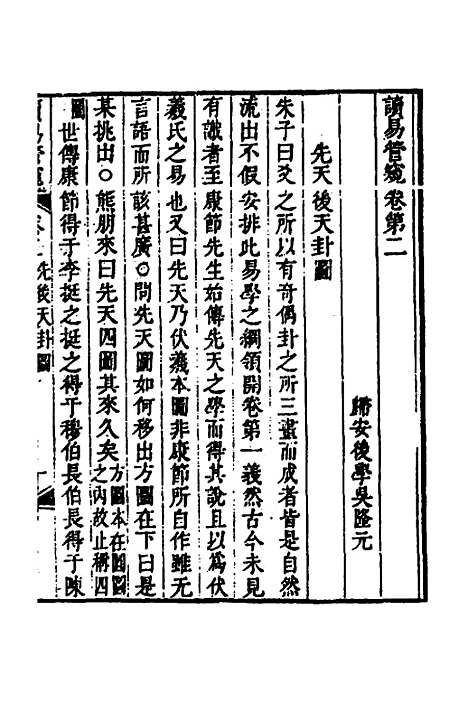 讀易管窺卷第二
歸安後學吳隆元
先天後天卦圖
朱子曰爻之所以有奇偶卦之所三畫而成者皆是自然
流出不假安排此易學之綱領開卷第一義然古今未見
有識者至康節先生始傳先天之學而得其說且以爲伏
羲氏之易也又曰先天乃伏羲本圖非康節所自作雖无
言語而所該甚廣○問先天圖如何移出方圖在下曰是
某挑出○熊朋來曰先天四圖其來久矣方圖本在圓圖之內故止稱四
圖世傳康節得于李挺之挺之得于穆伯長伯長得于陳
讀易管窺 卷二先後天卦圖 一